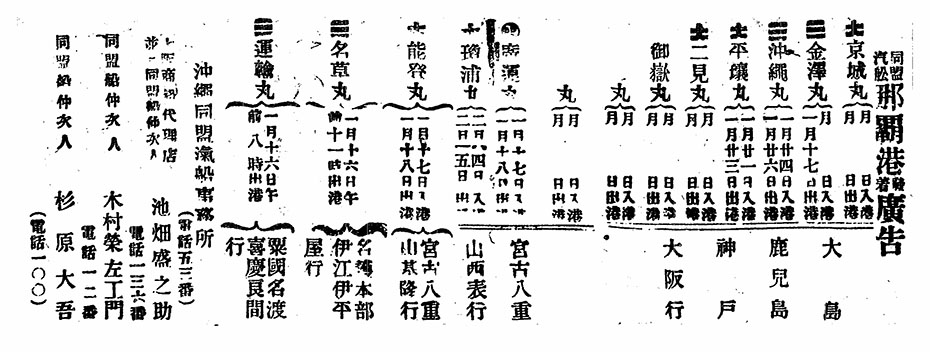 同盟汽船 那覇港 発着 廣告
京城丸 月 日入港 月 日出港
金澤丸 月 日入港 一月十七日出港
沖縄丸 一月廿四日入港 一月廿六日出港
平壤丸 一月廿一日入港 一月廿三日出港
二見丸 月 日入港 月 日出港
御嶽丸 月 日入港 月 日出港
丸 月 日入港 月 日出港
大島
鹿兒島
神戸
大阪行
丸 月 日入港 月 日出港
宮古八重
山西表行
能登丸 一月十七日入港 一月十八日出港
宮古八重
山基隆行
名草丸 一月十六日午前十一時出港
名護本部
伊江伊平
屋行
運輸丸 一月十六日午前八時出港
粟國名渡
喜慶良間
行
沖縄同盟滊船事務所
(電話五三番)
商船代理店
並同盟船仲次人 池畑盛之助
電話一三六番
同盟船仲次人 木村榮左工門
電話一二番
同盟船仲次人 杉原大吾
(電話一〇〇)